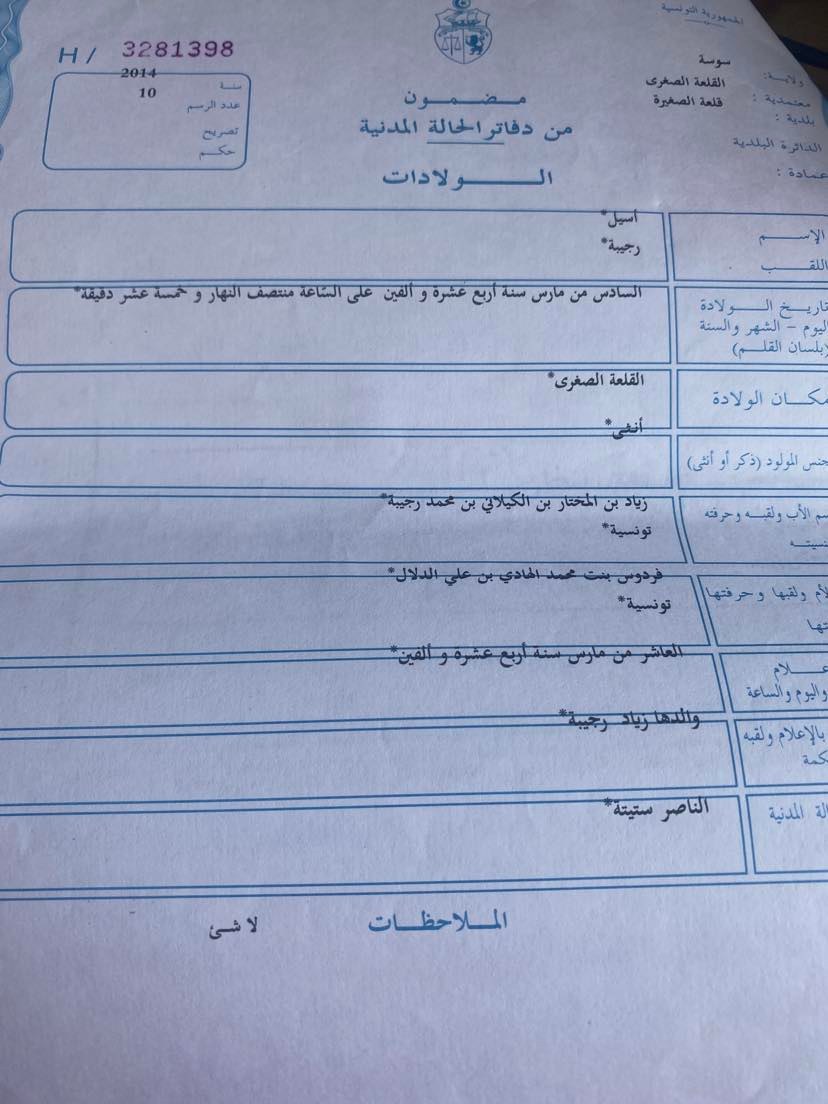 الجمهورية التونسية
H/ 3281398
ولاية: سوسة
معتمدية: القلعة الصغرى
بلدية: قلعة الصغيرة
الدائرة البلدية
عمادة:
سنة 2014
عدد الرسم 10
تصريح
حكم
مضمون
من دفاتر الحالة المدنية
الولادات
الإسم أسيل*
اللقب رجيبة*
تاريخ الولادة السادس من مارس سنة أربع عشرة و ألفين على السّاعة منتصف النهار و خمسة عشر دقيقة*
اليوم - الشهر والسنة
(بلسان القلم)
مكان الولادة القلعة الصغرى*
جنس المولود (ذكر أو أنثى) أنثى*
سم الأب ولقبه وحرفته زياد بن المختار بن الكيلاني بن محمد رجيبة*
نسيته تونسية*
لأم ولقبها وحرفتها فردوس بنت محمد الهادي بن علي الدلال*
تها تونسية*
علام العاشر من مارس سنة أربع عشرة و ألفين*
واليوم والساعة
بالإعلام ولقبه والدها زياد رجيبة*
كمة
لة المدنية الناصر ستيتة*
الملاحظات
لا شئ